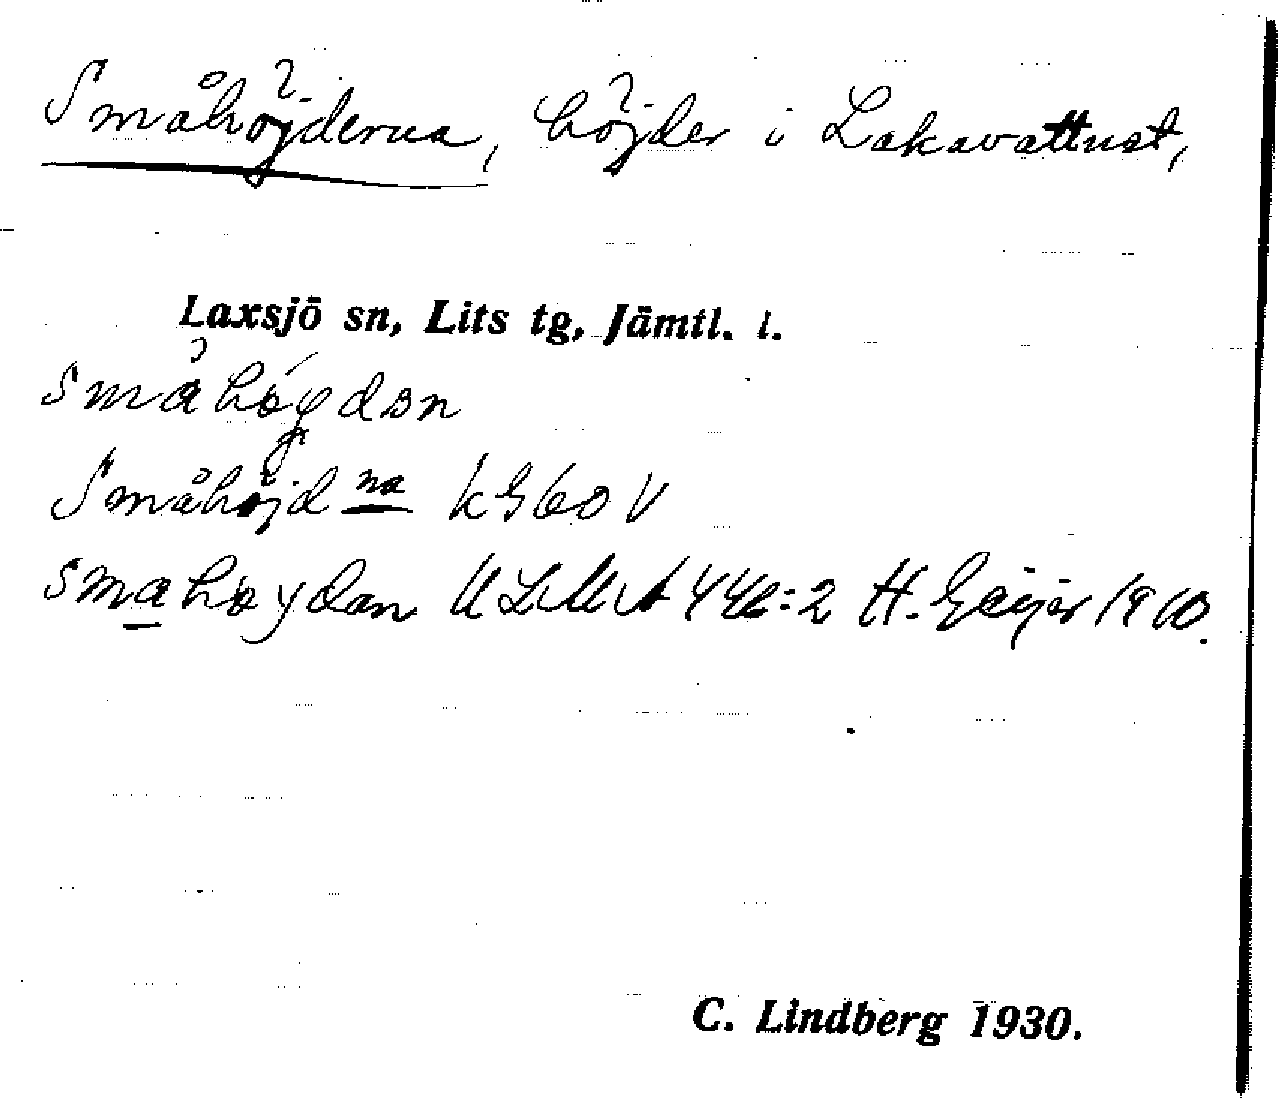 Småhöjderna, höjder i Lakavattnet,
Laxsjö sn, Lits tg, Jämtl. l.
småhögdan
Småhöjdna k 960 V
småhøydan ULMA 442:2 H. Geijer 1910.
C. Lindberg 1930.